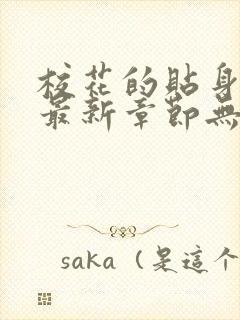 校花的貼身
最新章節無
saka（是這個